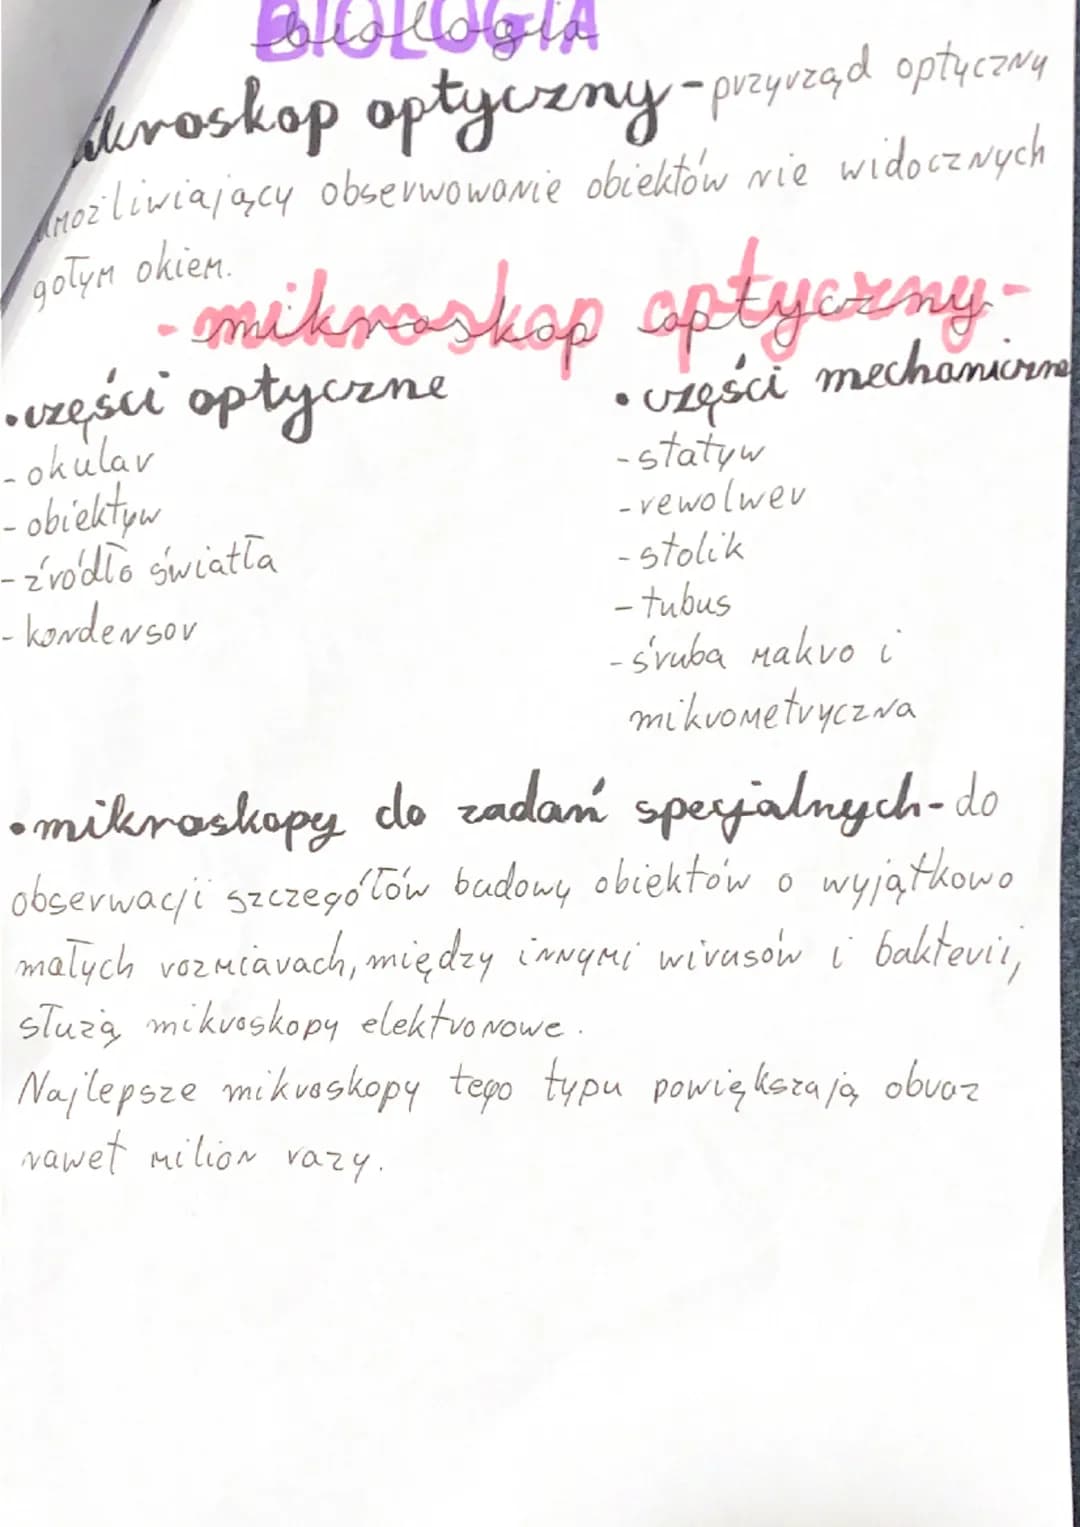 BIOLOGIA
biologia
mikroskop optyczny - przyrząd optyczny
umożliwiający obserwowanie obiektów nie widocznych
gołym okiem.
- mikroskop optyczny -
• części optyczne
- okular
- obiektyw
- źródło światła
- kondensor
• części mechaniczne
- statyw
- rewolwer
- stolik
- tubus
- śruba makro i
mikrometryczna
• mikroskopy do zadań specjalnych - do
obserwacji szczegółów budowy obiektów o wyjątkowo
małych rozmiarach, między innymi wirusów i bakterii,
służą mikroskopy elektronowe.
Najlepsze mikroskopy tego typu powiększają obraz
nawet milion razy.